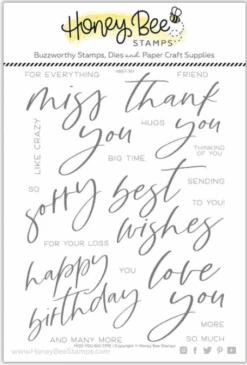 Honey Bee
STAMPS
Buzzworthy Stamps, Dies and Paper Craft Supplies
FOR EVERYTHING
FRIEND
miss
thank
you
HUGS
you
LIKE CRAZY
BIG TIME
THINKING
OF YOU
SO
sorry
best
SENDING
TO YOU!
wishes
FOR YOUR LOSS
happy
YOU
love
birthday
you
MORE
AND MANY MORE
SO MUCH
www.HoneyBeeStamps.com